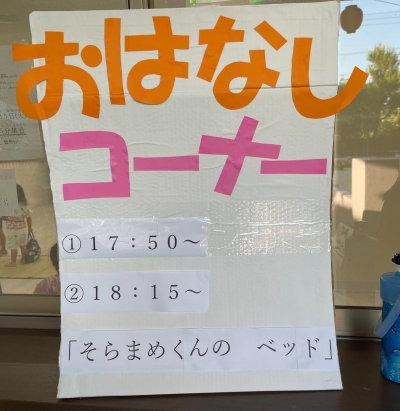 おはなし
コーナー
①17:50～
②18:15～
「そらまめくんの　ベッド」